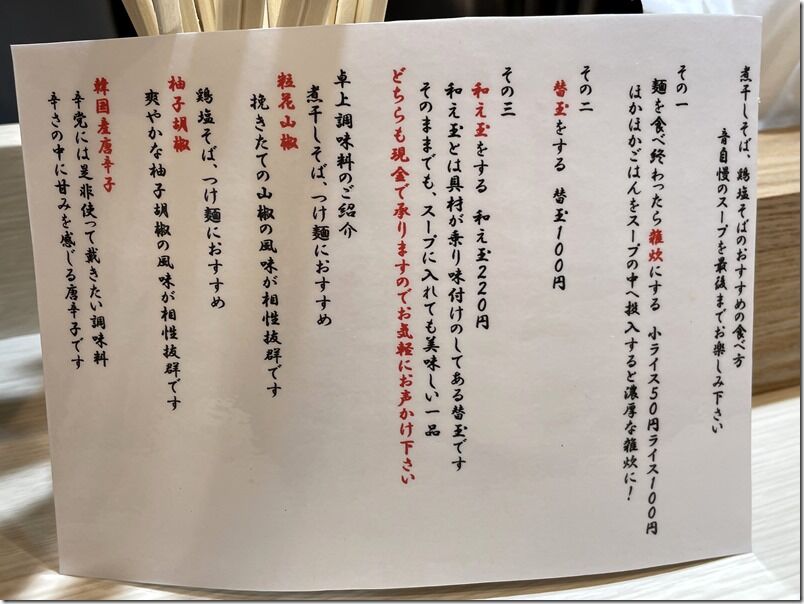 煮干しそば、鶏塩そばのおすすめの食べ方
音自慢のスープを最後までお楽しみ下さい
その一
麺を食べ終わったら雑炊にする 小ライス50円ライス100円
ほかほかごはんをスープの中へ投入すると濃厚な雑炊に!
その二
替玉をする 替玉100円
その三
和え玉をする 和え玉220円
和え玉とは具材が乗り味付けのしてある替玉です
そのままでも、スープに入れても美味しい一品
どちらも現金で承りますのでお気軽にお声かけ下さい
卓上調味料のご紹介
煮干しそば、つけ麺におすすめ
粒花山椒
挽きたての山椒の風味が相性抜群です
鶏塩そば、つけ麺におすすめ
柚子胡椒
爽やかな柚子胡椒の風味が相性抜群です
韓国産唐辛子
辛党には是非使って戴きたい調味料
辛さの中に甘みを感じる唐辛子です